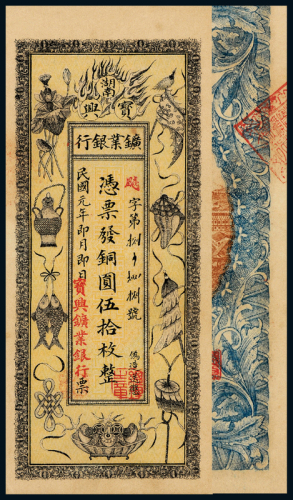 湖南
寶興
鑛業銀行
字第捌
捌號
憑票發銅圓伍拾枚整
民國元年 即月即日
寶興鑛業銀行票